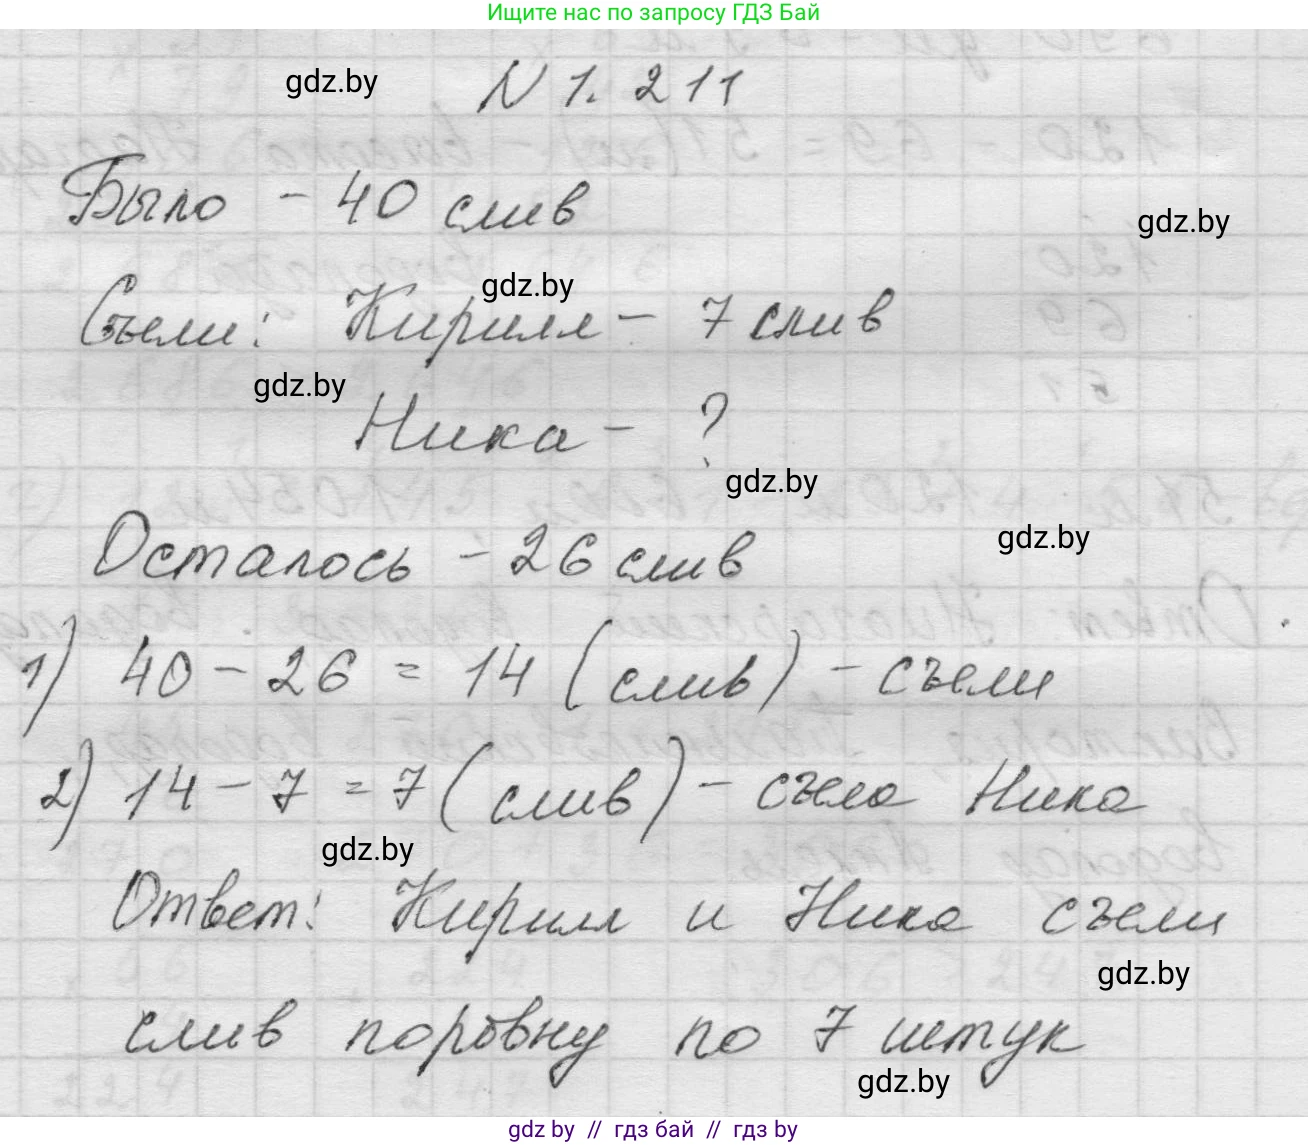 Ищите нас по запросу ГДЗ Бай
gdz.by
N 1. 211
Было - 40 слив
gdz.by
gdz.by
Съели: Кирилл - 7 слив
gdz.by
Ника - ?
gdz.by
gdz.by
Осталось - 26 слив
1) 40 - 26 = 14 (слив) - съели
2) 14 - 7 = 7 (слив) - съела Ника
gdz.by
Ответ: Кирилл и Ника съели
gdz.by
слив поровну по 7 штук
gdz.by
gdz by // гдз бай // гдз by